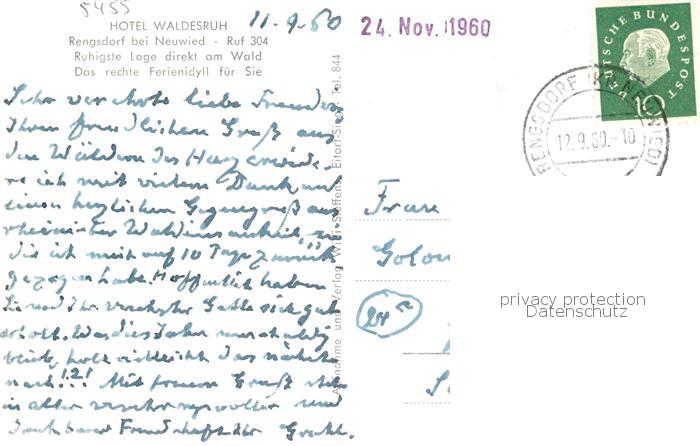 5455
HOTEL WALDESRUH
Rengsdorf bei Neuwied · Ruf 304
Ruhigste Lage direkt am Wald
Das rechte Ferienidyll für Sie
11.9.60
24. Nov. 1960
DEUTSCHE BUNDESPOST
10
RENGSDORF
12.9.60.-10
Sehr verehrte liebe Freunde
Ihren freundlichen Gruß aus
den Wäldern des Harz erwide-
re ich mit vielem Dank und
einem herzlichen Gegengruß aus
Waldeinsamkeit, in
die ich mich auf 10 Tage zurück
gezogen habe. Hoffentlich haben
Sie und Ihr verehrter Gatte sich gut
erholt. Was dies Jahr
bleibt, holt vielleicht das nächste
nach!?! Mit frohem Gruß stets
in alter verehrungsvoller und
dankbarer Freundschaft Ihr
Aufnahme und Verlag Steffens, Eitorf-Sieg Tel. 844
Frau
254
privacy protection
Datenschutz